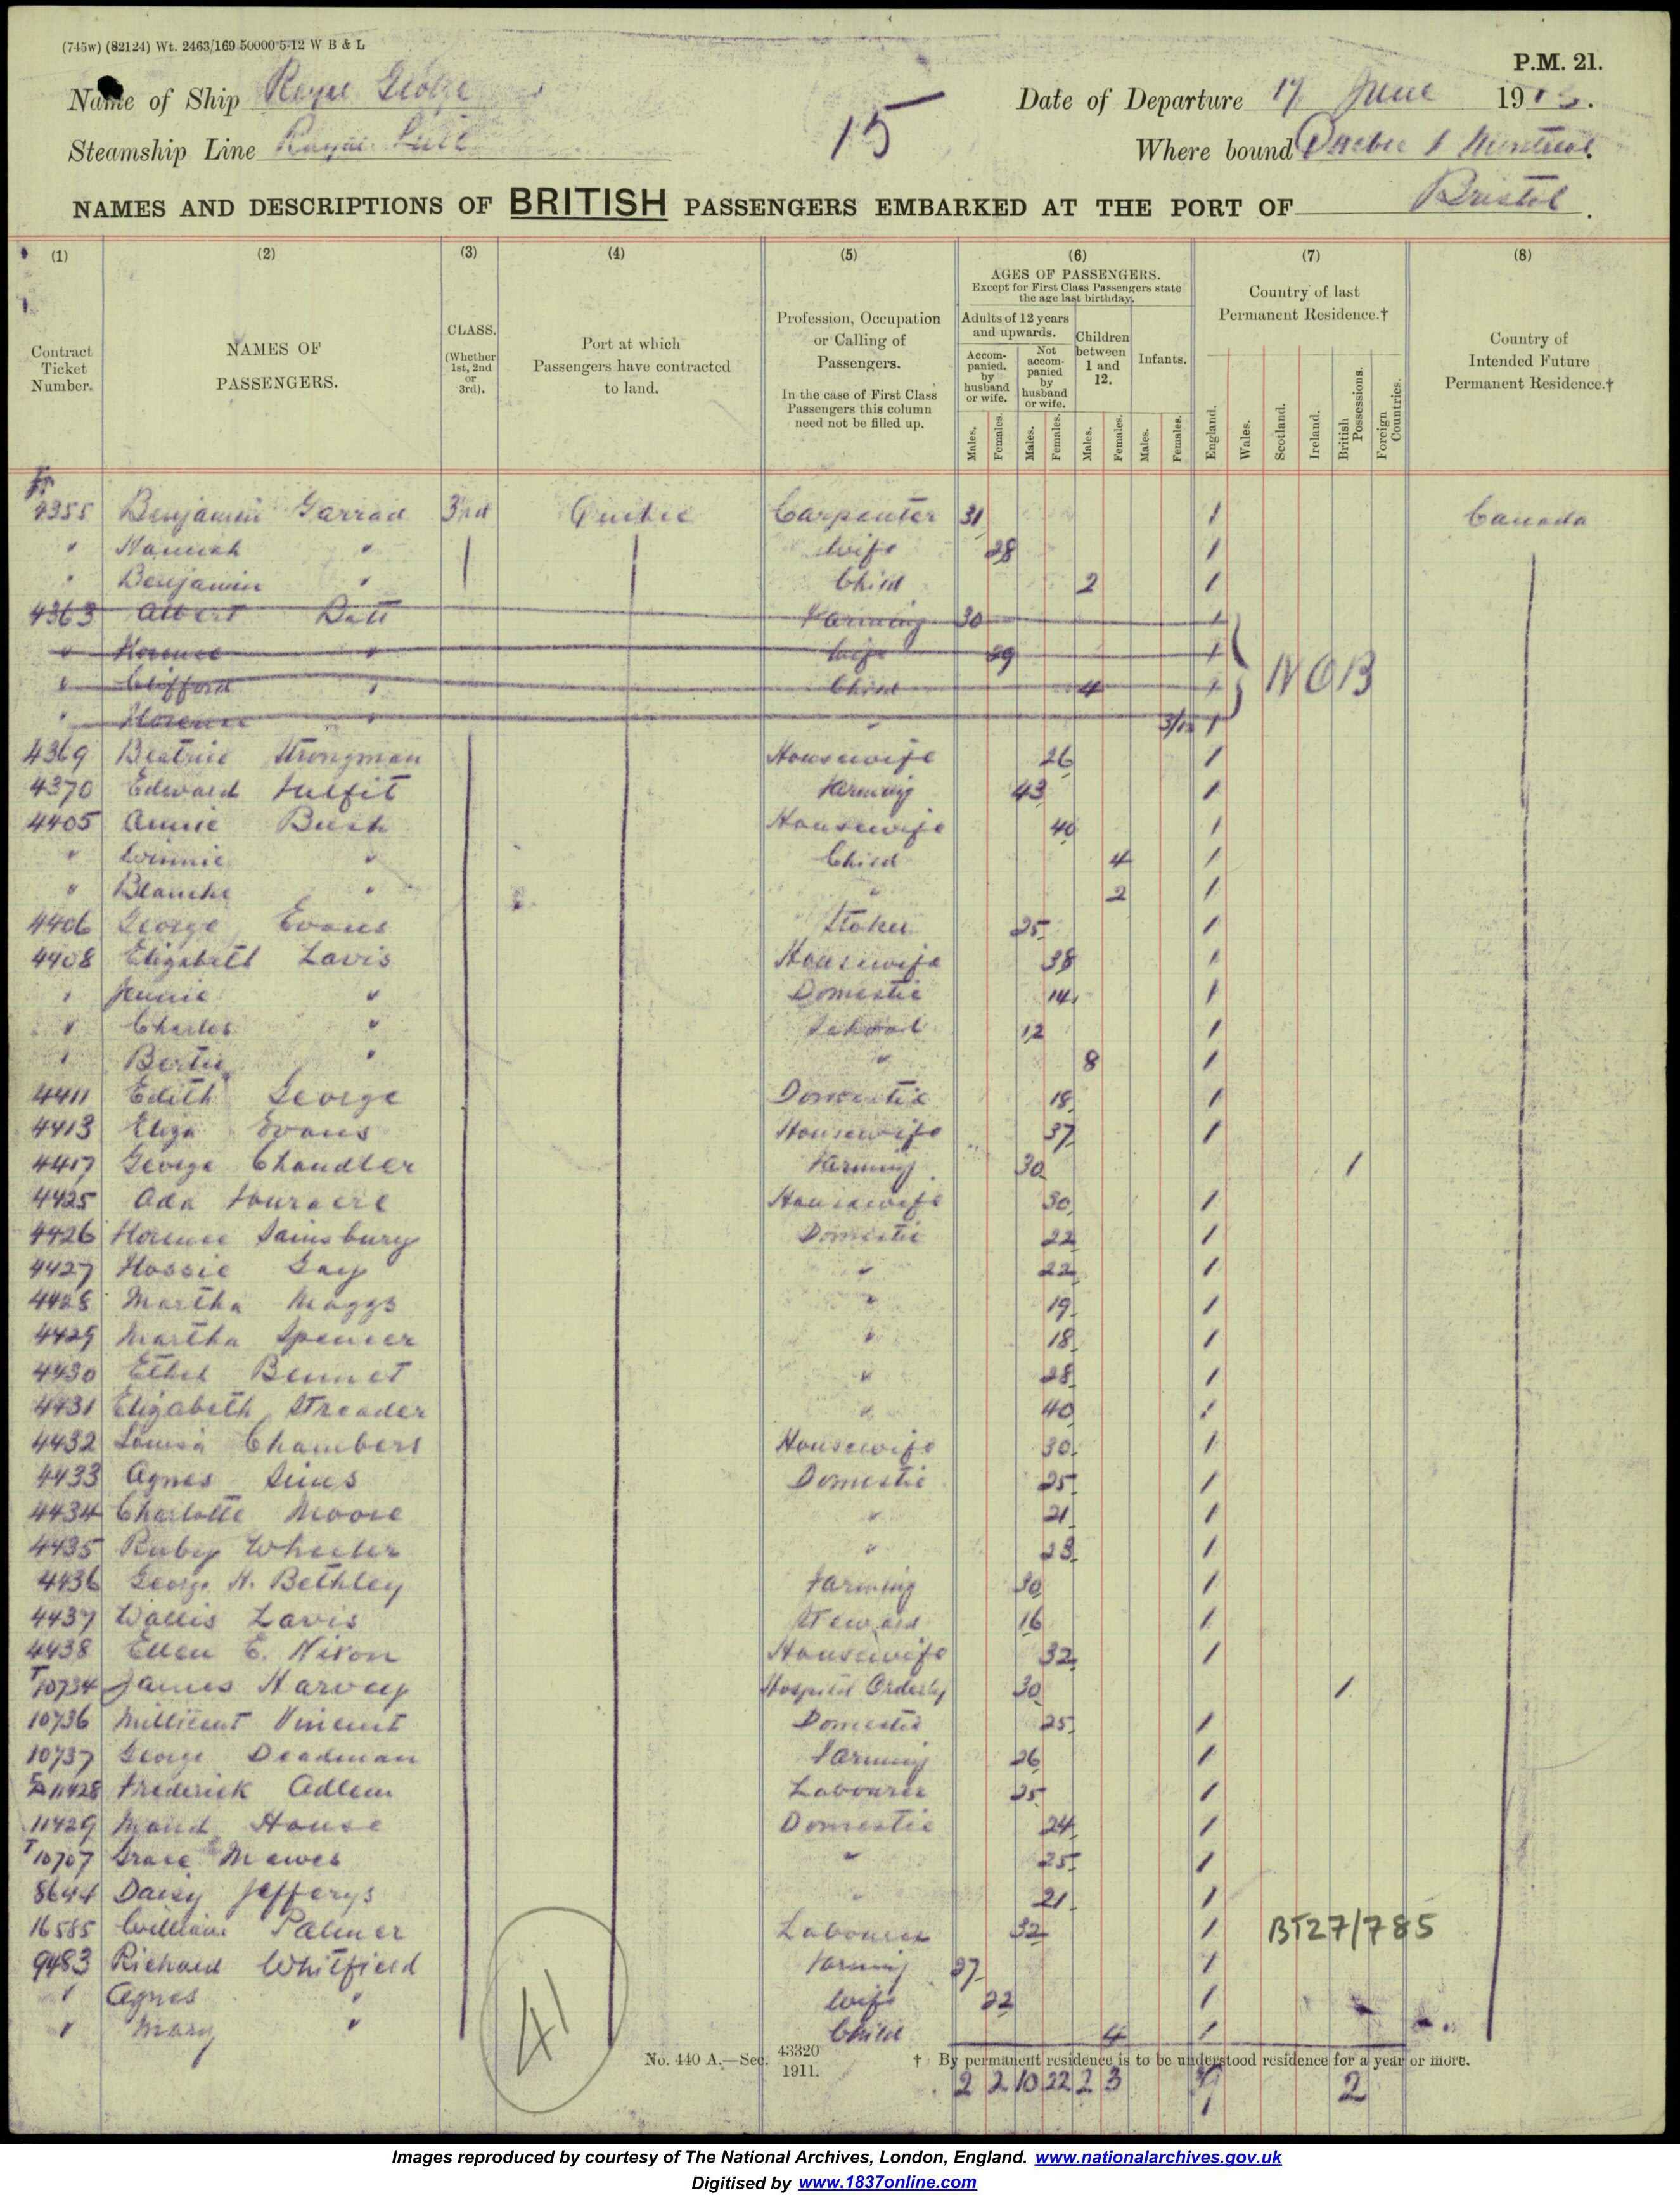 (745w) (82124) Wt. 2463/169 50000 5-12 W B & L
P.M. 21.
Name of Ship Royal George
Date of Departure 17 June 1913.
Steamship Line Royal Line
15
Where bound Quebec & Montreal
NAMES AND DESCRIPTIONS OF BRITISH PASSENGERS EMBARKED AT THE PORT OF Bristol.
(1) (2) (3) (4) (5) (6) (7) (8)
Contract Ticket Number.
NAMES OF PASSENGERS.
CLASS. (Whether 1st, 2nd or 3rd).
Port at which Passengers have contracted to land.
Profession, Occupation or Calling of Passengers.
In the case of First Class Passengers this column need not be filled up.
AGES OF PASSENGERS.
Except for First Class Passengers state the age last birthday.
Adults of 12 years and upwards.
Accompanied. by husband or wife.
Not accompanied by husband or wife.
Children between 1 and 12.
Infants.
Males. Females. Males. Females. Males. Females. Males. Females.
Country of last Permanent Residence.†
England. Wales. Scotland. Ireland. British Possessions. Foreign Countries.
Country of Intended Future Permanent Residence.†
4355 Benjamin Garrad 3rd Quebec Carpenter 31 1 Canada
" Hannah " Wife 28 1
" Benjamin " Child 2 1
4363 Albert Batt Farming 30 1
" Florence " Wife 29 1
" Clifford " Child 4 1 NOB
" Florence " " 3/12 1
4369 Beatrice Strongman Housewife 26 1
4370 Edward Fulfit Farming 43 1
4405 Annie Bush Housewife 40 1
" Winnie " Child 4 1
" Blanche " " 2 1
4406 George Evans Stoker 25 1
4408 Elizabeth Lavis Housewife 38 1
" Jennie " Domestic 14 1
" Charles " School 12 1
" Bertie " " 8 1
4411 Edith George Domestic 18 1
4413 Eliza Evans Housewife 37 1
4417 George Chandler Farming 30 1
4425 Ada Fouracre Housewife 30 1
4426 Florence Sainsbury Domestic 22 1
4427 Flossie Gay " 22 1
4428 Martha Maggs " 19 1
4429 Martha Spencer " 18 1
4430 Ethel Bennet " 28 1
4431 Elizabeth Streader " 40 1
4432 Louisa Chambers Housewife 30 1
4433 Agnes Sims Domestic 25 1
4434 Charlotte Moore " 21 1
4435 Ruby Wheeler " 23 1
4436 George H. Bethley Farming 30 1
4437 Wallis Lavis Steward 16 1
4438 Ellen E. Nixon Housewife 32 1
T10734 James Harvey Hospital Orderly 30 1
10736 Millicent Vincent Domestic 25 1
10737 George Deadman Farming 26 1
11428 Frederick Adlem Labourer 25 1
11429 Maud House Domestic 24 1
T10707 Grace Mewes " 25 1
8644 Daisy Jefferys " 21 1
16585 William Palmer Labourer 32 1 BT27/785
9483 Richard Whitfield Farming 27 1
" Agnes " Wife 22 1
" Mary " Child 4 1
41
No. 440 A.—Sec. 43320 1911.
† By permanent residence is to be understood residence for a year or more.
2 2 10 22 2 3 2
Images reproduced by courtesy of The National Archives, London, England. www.nationalarchives.gov.uk
Digitised by www.1837online.com